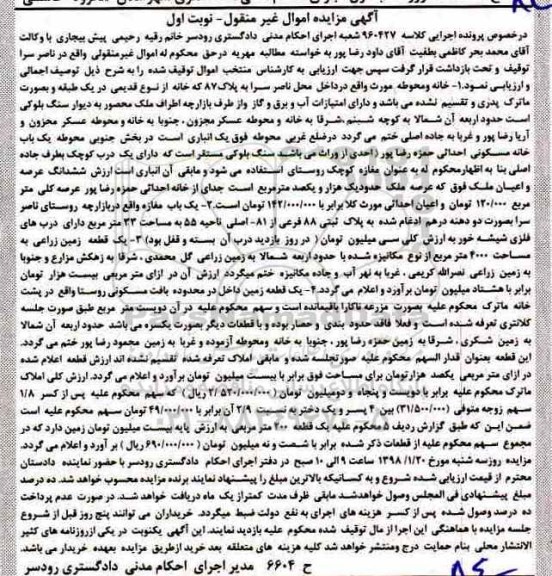 آگهی مزایده اموال غیر منقول - نوبت اول
درخصوص پرونده اجرایی کلاسه ۹۶۰۴۲۷ شعبه اجرای احکام مدنی دادگستری رودسر خانم رقیه رحیمی پیش بیجاری با وکالت
آقای محمد بحر کاظمی بطفیت آقای داود رضا پور به خواسته مطالبه مهریه درحق محکوم له اموال غیرمنقولی واقع در ناصر سرا
توقیف و تحت بازداشت قرار گرفت سپس جهت ارزیابی به کارشناس منتخب اموال توقیف شده را به شرح ذیل توصیف اجمالی
و ارزیابی نمود.۱- خانه ومحوطه مورد واقع درداخل محل ناصر سرا به پلاک۸۷ که خانه از نوع قدیمی در یک طبقه و بصورت
ماترک پدری و تقسیم نشده می باشد و دارای امتیازات آب و برق و گاز واز طرف بازارچه اطراف ملک محصور به دیوار سنگ بلوکی
است حدود اربعه آن شمالا به کوچه شبنم،شرقا به خانه و محوطه عسکر مخزون ، جنوبا به خانه و محوطه عسکر مخزون و
آریا رضا پور و غربا به جاده اصلی ختم می گردد درضلع غربی محوطه فوق یک انباری است در بخش جنوبی محوطه یک باب
خانه مسکونی احداثی حمزه رضا پور (احدی از وراث می باشد سنگ بلوکی مستقر است که دارای یک درب کوچک بطرف جاده
اصلی بنا به اظهارمحکوم له به عنوان مغازه کوچک روستای استفاده می شود و مابقی آن انباری است ارزش ششدانگ عرصه
و اعیان ملک فوق که عرصه ملک حدودیک هزار و یکصد مترمربع است جدای از خانه احداثی حمزه رضا پور عرصه کلی متر
مربع ۱۲۰/۰۰۰ تومان و اعیان احداثی مورث کلا برابر با ۱۴۲/۰۰۰/۰۰۰ تومان است.۲- یک باب مغازه واقع دربازارچه روستای ناصر
سرا بصورت دو دهنه درهم ادغام شده به پلاک ثبتی ۸۸ فرعی از ۸۱- اصلی ناحیه ۵۵ به مساحت ۳۳ متر مربع دارای درب های
فلزی شیشه خور به ارزش کلی سی میلیون تومان ( در روز بازدید درب آن بسته و قفل بود) ۳- یک قطعه زمین زراعی به
مساحت ۴۰۰۰ متر مربع از نوع مکانیزه شده با حدود اربعه شمالا به زمین زراعی گل محمدی ، شرقا به زهکش مزارع و جنوبا
به زمین زراعی نصرالله کریمی ، غربا به نهر آب و جاده مکانیزه ختم میگردد ارزش آن در ازای متر مربعی بیست هزار تومان
برابر با هشتاد میلیون تومان برآورد و اعلام می گردد.۴- یک قطعه زمین داخل در محدوده بافت مسکونی روستا واقع در پشت
خانه ماترک محکوم علیه بصورت مزرعه ناکارا باقیمانده است و سهم محکوم علیه در آن دویست متر مربع طبق صورت جلسه
کلانتری تعرفه شده است و فعلا فاقد حدود بندی و حصار بوده و با قطعات دیگر بصورت یکسره می باشد حدود اربعه آن شمالا
به زمین شکری ، شرقا به زمین حمزه رضا پور ، جنوبا به خانه ومحوطه آزموده و غربا به زمین محمود رضا پور ختم می گردد.
این قطعه بعنوان قدار السهم محکوم علیه صورتجلسه شده و مابقی املاک تعرفه شده تقسیم نشده اند ارزش قطعه اعلام شده
در ازای متر مربعی یکصد هزارتومان برای مساحت فوق برابر با بیست میلیون تومان برآورد و اعلام می گردد. ارزش کلی املاک
ماترک محکوم علیه برابر با دویست و پنجاه و دومیلیون تومان( ۲/۵۲۰/۰۰۰/۰۰۰ ریال ) که سهم محکوم علیه پس از کسر ۱/۸
سهم زوجه متوفی (۳۱/۵۰۰/۰۰۰) بین ۴ پسر و یک دختر به نسبت ۲/۹ آن برابر با ۴۹/۰۰۰/۰۰۰ تومان سهم محکوم علیه است
ضمن این که طبق گزارش ردیف ۵ محکوم علیه یک قطعه ۲۰۰ متر مربعی به ارزش پایه بیست میلیون تومان زمین دارد که در
مجموع سهم محکوم علیه از قطعات ذکر شده برابر با شصت و نه میلیون تومان ( ۶۹۰/۰۰۰/۰۰۰ ریال ) بر آورد و اعلام می گردد.
مزایده روزسه شنبه مورخ ۱۳۹۸/۱/۲۰ ساعت ۹ الی ۱۰ صبح در دفتر اجرای احکام دادگستری رودسر با حضور نماینده دادستان
محترم از قیمت ارزیابی شده شروع و به کسانیکه بالاترین مبلغ را پیشنهاد نمایند برنده مزایده محسوب خواهد شد. ده درصد
مبلغ پیشنهادی فی المجلس وصول خواهدشد مابقی ظرف مدت کمتراز یک ماه دریافت خواهد شد. در صورت عدم پرداخت
ده درصد وصول شده پس از کسر هزینه های اجرای به نفع دولت ضبط میگردد. خریداران می توانند پنج روز قبل از شروع
جلسه مزایده با هماهنگی این اجرا از مال توقیف شده محکوم علیه بازدید نمایند. این آگهی یکنوبت در یکی ازروزنامه های کثیر
الانتشار محلی بنام حمایت درج ومنتشر خواهد شد کلیه هزینه های متعلقه بعد خرید ازطریق مزایده بعهده خریدار می باشد.
ح ۶۶۰۴ مدیر اجرای احکام مدنی دادگستری رودسر